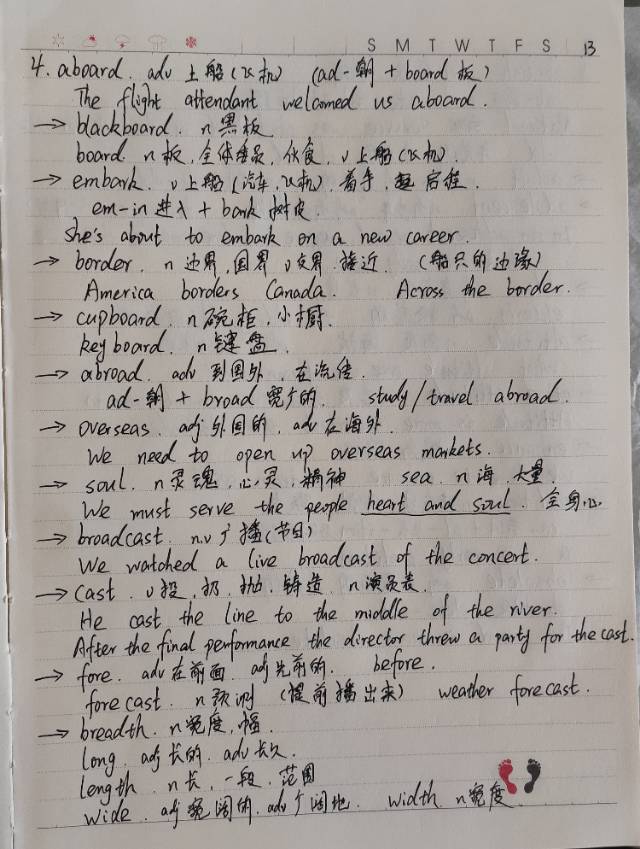 S M T W T F S 13
4. aboard. adv 上船(飞机) (ad-朝 + board 板)
The flight attendant welcomed us aboard.
→ blackboard. n 黑板
board. n 板, 全体委员, 伙食, v 上船(飞机).
→ embark. v 上船(汽车, 飞机). 着手, 启程.
em-in 进入 + bark 树皮
She's about to embark on a new career.
→ border. n 边界, 国界 v 交界. 接近. (船只的边缘)
America borders Canada. Across the border.
→ cupboard. n 碗柜, 小橱.
keyboard. n 键盘
→ abroad. adv 到国外, 在流传
ad-朝 + broad 宽广的. study/travel abroad.
→ overseas. adj 外国的, adv 在海外.
We need to open up overseas markets.
→ soul. n 灵魂, 心灵, 精神 sea. n 海, 大量.
We must serve the people heart and soul. 全身心
→ broadcast. n.v 广播(节目)
We watched a live broadcast of the concert.
→ cast. v 投, 扔, 抛, 铸造. n 演员表.
He cast the line to the middle of the river.
After the final performance the director threw a party for the cast.
→ fore. adv 在前面. adj 先前的. before.
forecast. n 预测 (提前播出来) weather forecast.
→ breadth. n 宽度, 幅.
long. adj 长的. adv 长久
length. n 长, 一段, 范围
wide. adj 宽阔的. adv 广阔地. width n 宽度